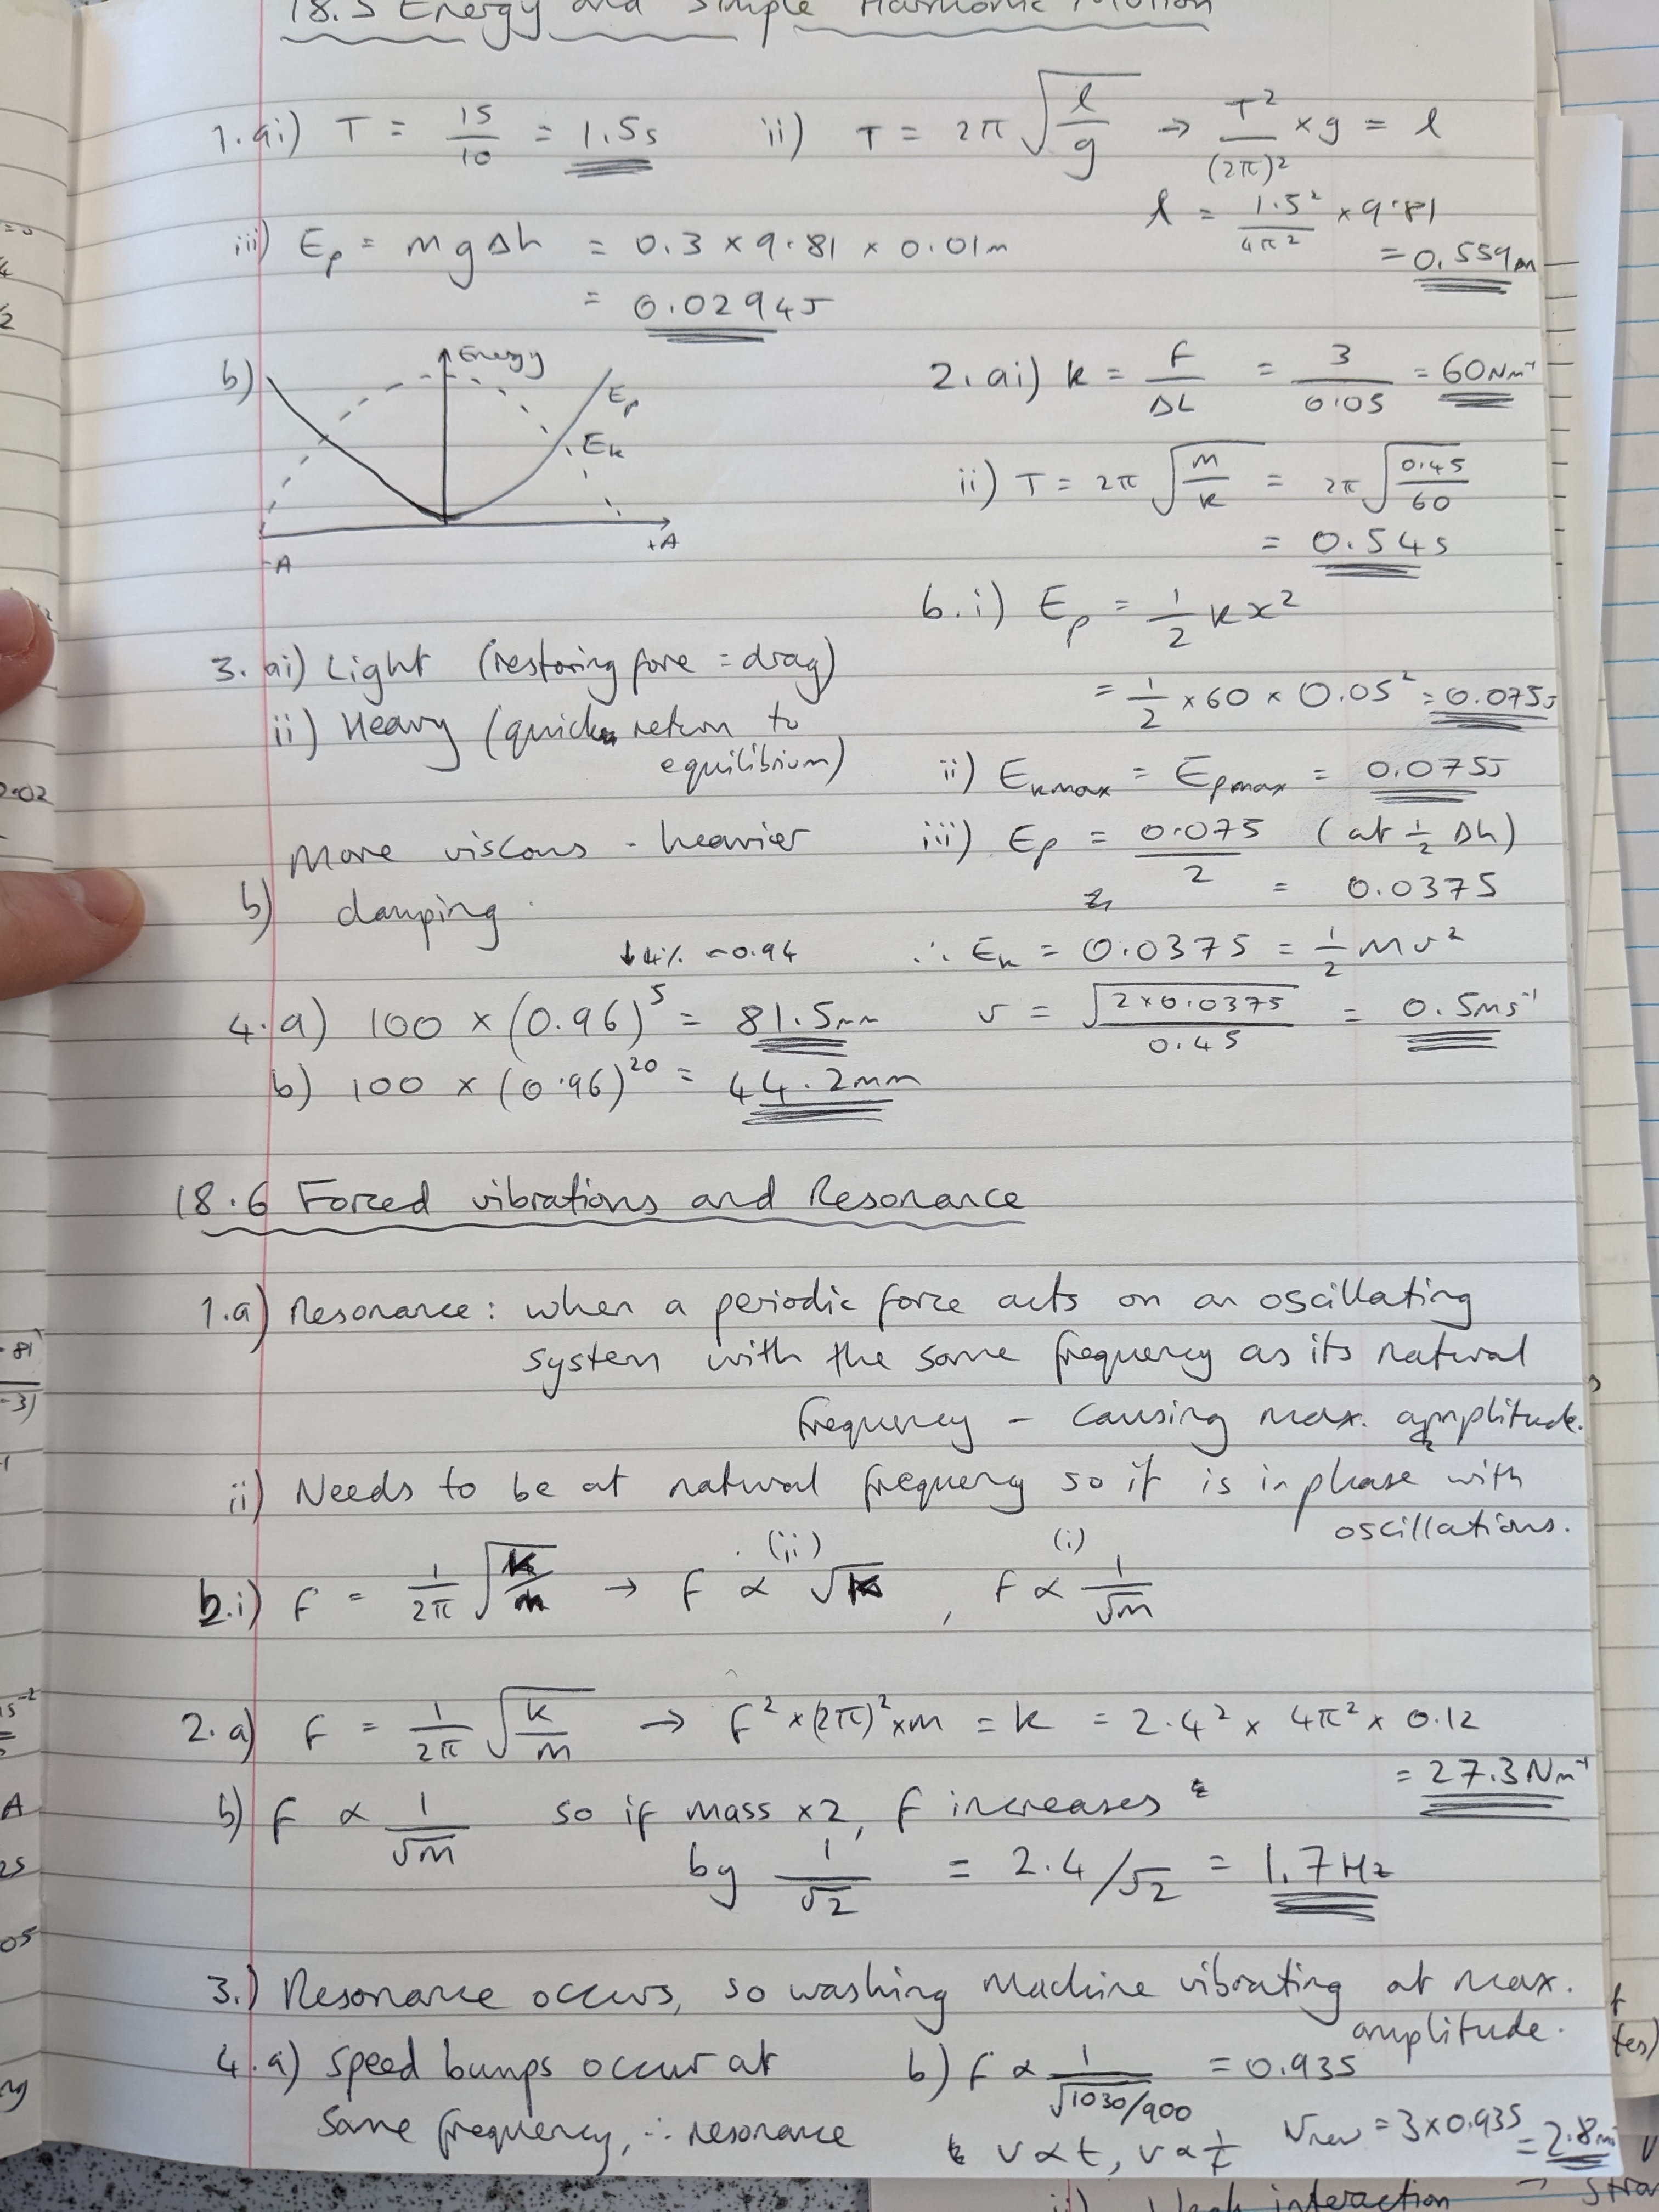 18.5 Energy and Simple Harmonic Motion
1.ai) T = 15/10 = 1.5s ii) T = 2π√(l/g) → T²/(2π)² × g = l
l = 1.5²/4π² × 9.81
= 0.559m
iii) Ep = mgΔh = 0.3 × 9.81 × 0.01m
= 0.0294J
b) Energy
Ep
Ek
-A
+A
2. ai) k = F/ΔL = 3/0.05 = 60Nm⁻¹
ii) T = 2π√(m/k) = 2π√(0.45/60)
= 0.54s
b.i) Ep = 1/2 kx²
= 1/2 × 60 × 0.05² = 0.075J
ii) Ekmax = Epmax = 0.075J
iii) Ep = 0.075/2 (at 1/2 Δh)
= 0.0375
∴ Ek = 0.0375 = 1/2 mv²
v = √(2×0.0375/0.45) = 0.5ms⁻¹
3. ai) Light (restoring force = drag)
ii) Heavy (quick return to
equilibrium)
More viscous - heavier
b) damping.
↓4% =0.94
4.a) 100 × (0.96)⁵ = 81.5mm
b) 100 × (0.96)²⁰ = 44.2mm
18.6 Forced vibrations and Resonance
1.a) Resonance: when a periodic force acts on an oscillating
system with the same frequency as its natural
frequency - causing max. amplitude.
ii) Needs to be at natural frequency so it is in phase with
oscillations.
(ii) (i)
b.i) f = 1/2π √(k/m) → f ∝ √k , f ∝ 1/√m
2.a) f = 1/2π √(k/m) → f² × (2π)² × m = k = 2.4² × 4π² × 0.12
= 27.3Nm⁻¹
b) f ∝ 1/√m so if mass ×2, f increases
by 1/√2 = 2.4/√2 = 1.7Hz
3.) Resonance occurs, so washing machine vibrating at max.
amplitude.
4.a) Speed bumps occur at
same frequency, ∴ resonance
b) f ∝ 1/√(1030/900) = 0.935
v ∝ t, v ∝ 1/f Vnew = 3 × 0.935
= 2.8m